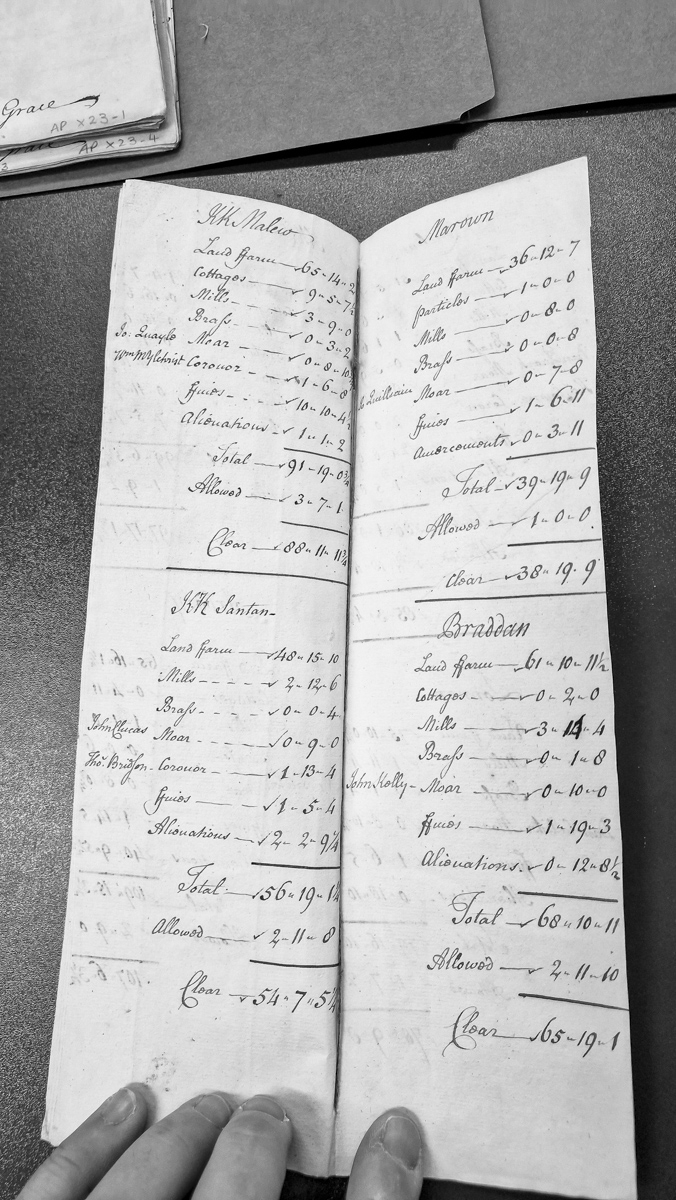 Grace
AP X23-1
Grace
AP X23-4
3
KK Malew
Land ffarm 65-14-2
Cottages 9-5-7½
Mills 3-9-0
Brass 0-3-2
Jo: Quayle Moar 0-8-10
Wm Mylchrist Coroner 1-6-8
ffines 10-10-4½
Alienations 1-1-2
Total 91-19-0¾
Allowed 3-7-1
Clear 88-11-11¾
KK Santan
Land ffarm 48-15-10
Mills 2-12-6
Brass 0-0-4
John Clucas Moar 0-9-0
Tho: Bridson Coroner 1-13-4
ffines 1-5-4
Alienations 2-2-9¼
Total 56-19-1¼
Allowed 2-11-8
Clear 54-7-5¼
Marown
Land ffarm 36-12-7
particles 1-0-0
Mills 0-8-0
Brass 0-0-8
Quilliam Moar 0-7-8
ffines 1-6-11
Amercements 0-3-11
Total 39-19-9
Allowed 1-0-0
Clear 38-19-9
Braddan
Land ffarm 61-10-11½
Cottages 0-2-0
Mills 3-14-4
Brass 0-1-8
John Kelly Moar 0-10-0
ffines 1-19-3
Alienations 0-12-8½
Total 68-10-11
Allowed 2-11-10
Clear 65-19-1